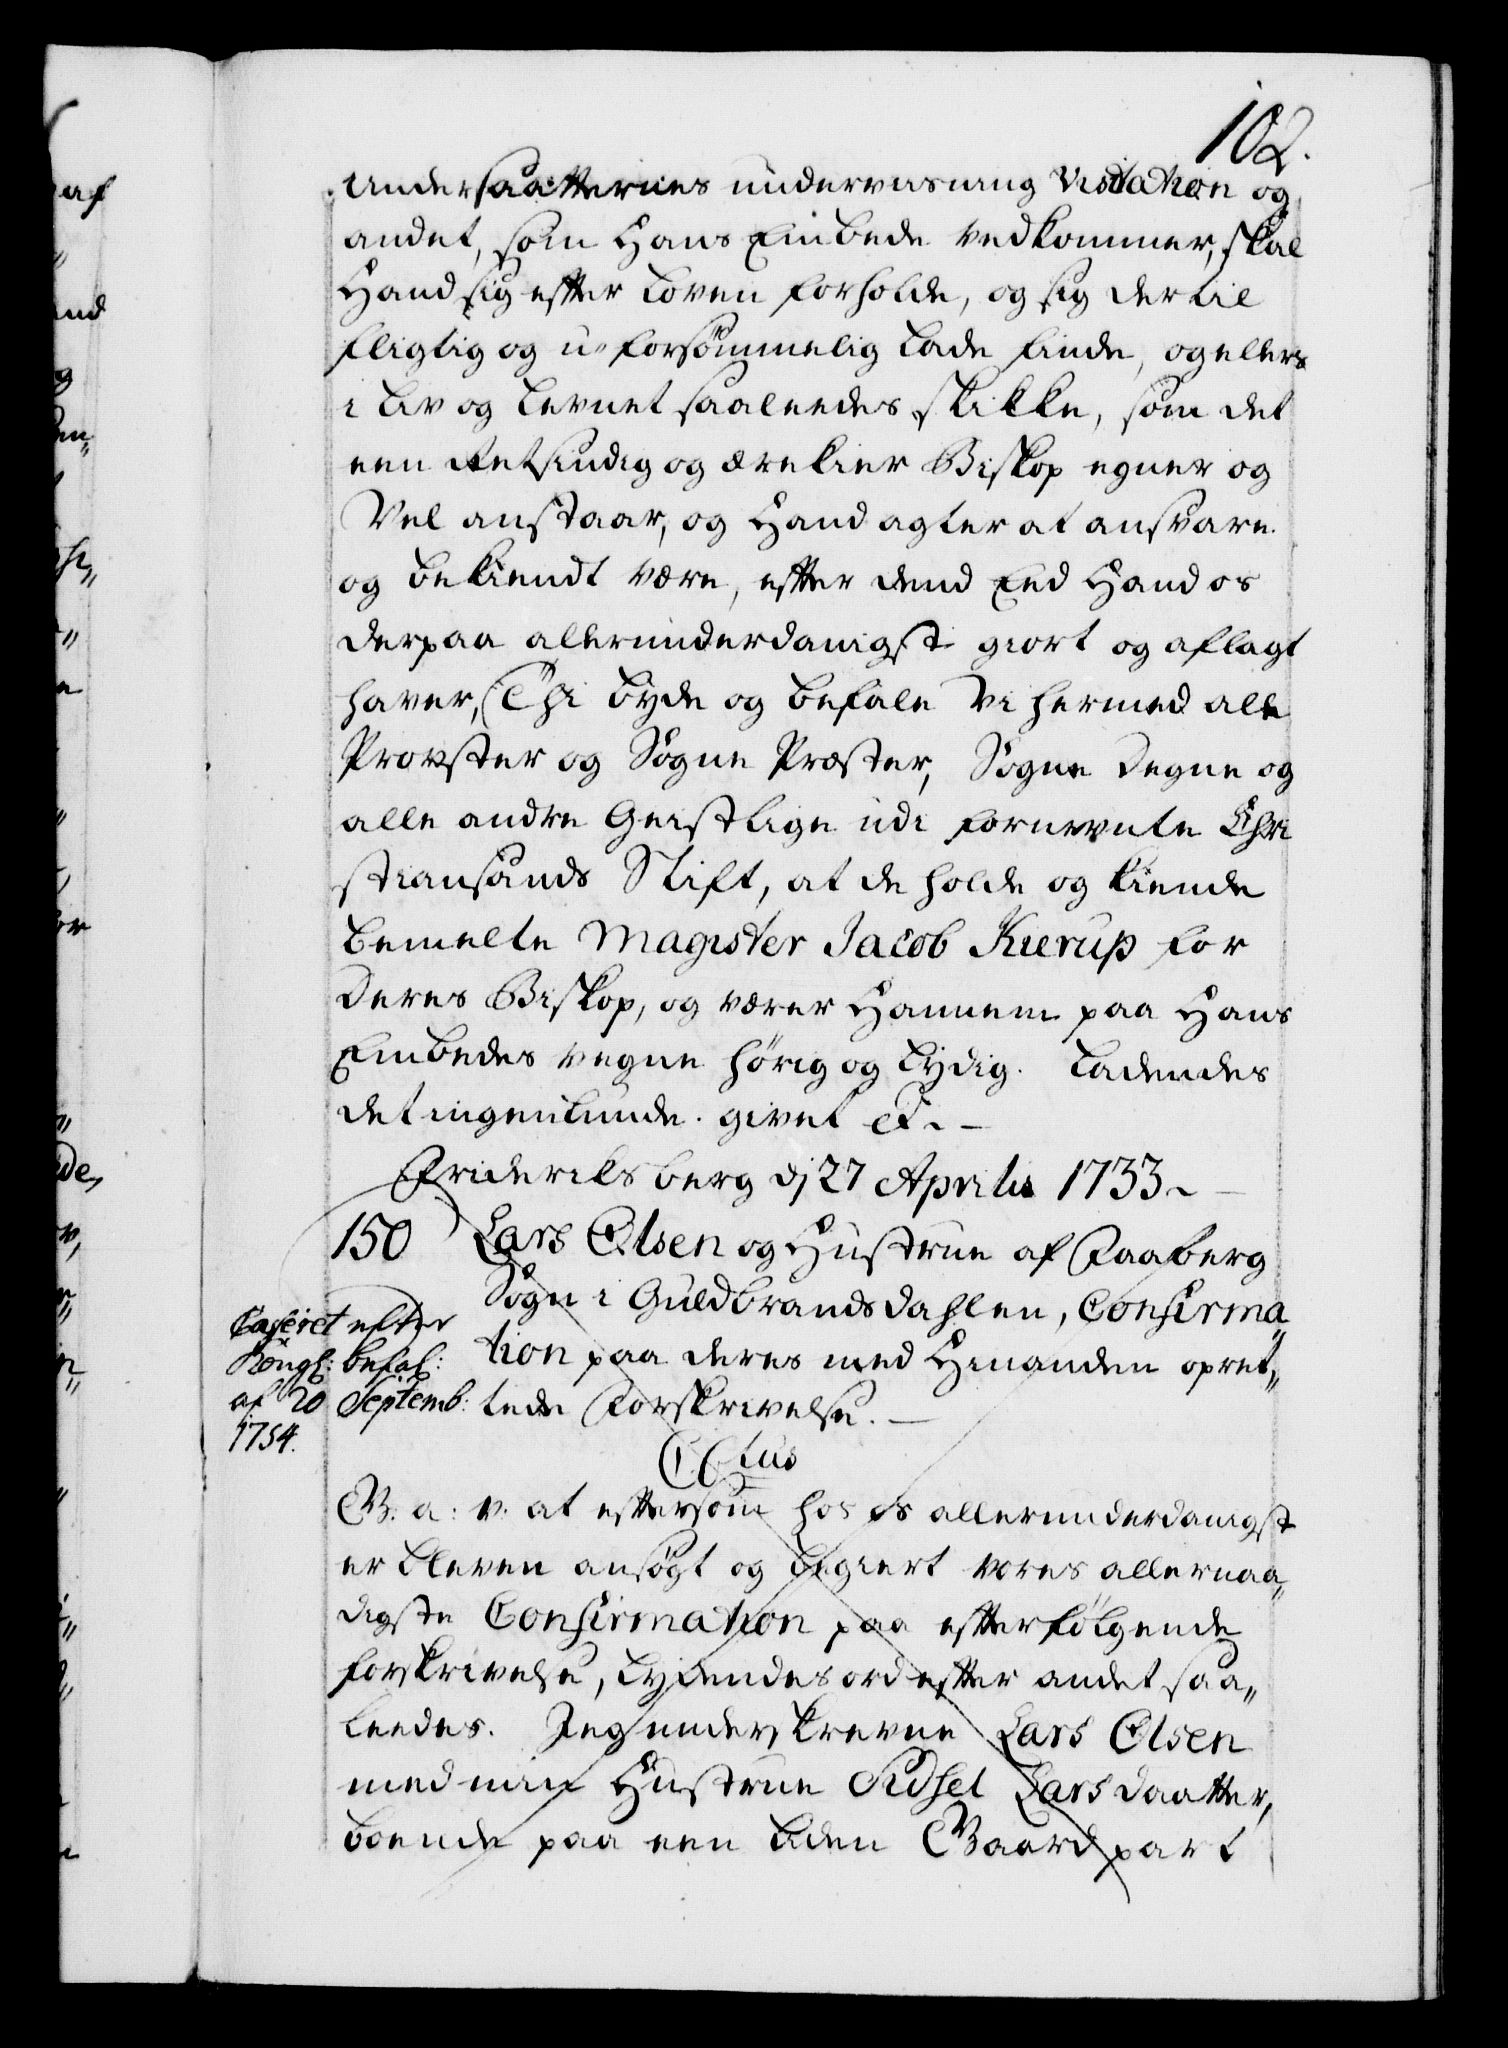 102.
Undersaatternes undervisning Visitation og
andet, som Hans Embede vedkommer, skal
Hand sig effter Loven forholde, og sig dertil
fligtig og u-forsømmelig lade finde, og ellers
i Liv og Levnet saaleedes skikke, som det
een Retsindig og ærekier Biskop egner og
Vel anstaar, og Hand agter at ansvare
og bekiendt være, effter dend Eed Hand os
derpaa allerunderdanigst giort og aflagt
haver, Thi byde og befale Vi hermed alle
Provster og Sogne Præster, Sogne Degne og
alle andre Geistlige udi fornevnte Chri
stiansands Stift, at de holde og kiende
bemelte Magister Jacob Kierup for
Deres Biskop, og værer Hannem paa Hans
Embedes vegne hørig og lydig. Ladendes
det ingenlunde. givet etc. –
Frideriksberg dj 27 Aprilis 1733. –
150 Lars Olsen og Hustrue af Faaberg
Sogn i Guldbrandsdahlen, Confirma
tion paa deres med Hinanden opret„
tede Forskrivelse. –
Caseret effter
Kongl: befal:
af 20 Septemb:
1754.
C 6tus
G. a: v. at efftersom hos os allerunderdanigst
er bleven ansøgt og begiert vores allernaa„
digste Confirmation paa effterfølgende
forskrivelse, lydendes ord effter andet saa„
leedes. Jeg underskrevne Lars Olsen
med min Hustrue Sidsel Larsdaatter,
boende paa een liden Gaard part
af